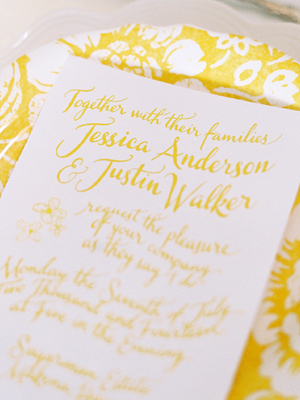 Together with their families
Jessica Anderson
& Justin Walker
request the pleasure
of your company
as they say "I do"
Monday the Seventh of July
Two Thousand and Fourteen
at Five in the Evening